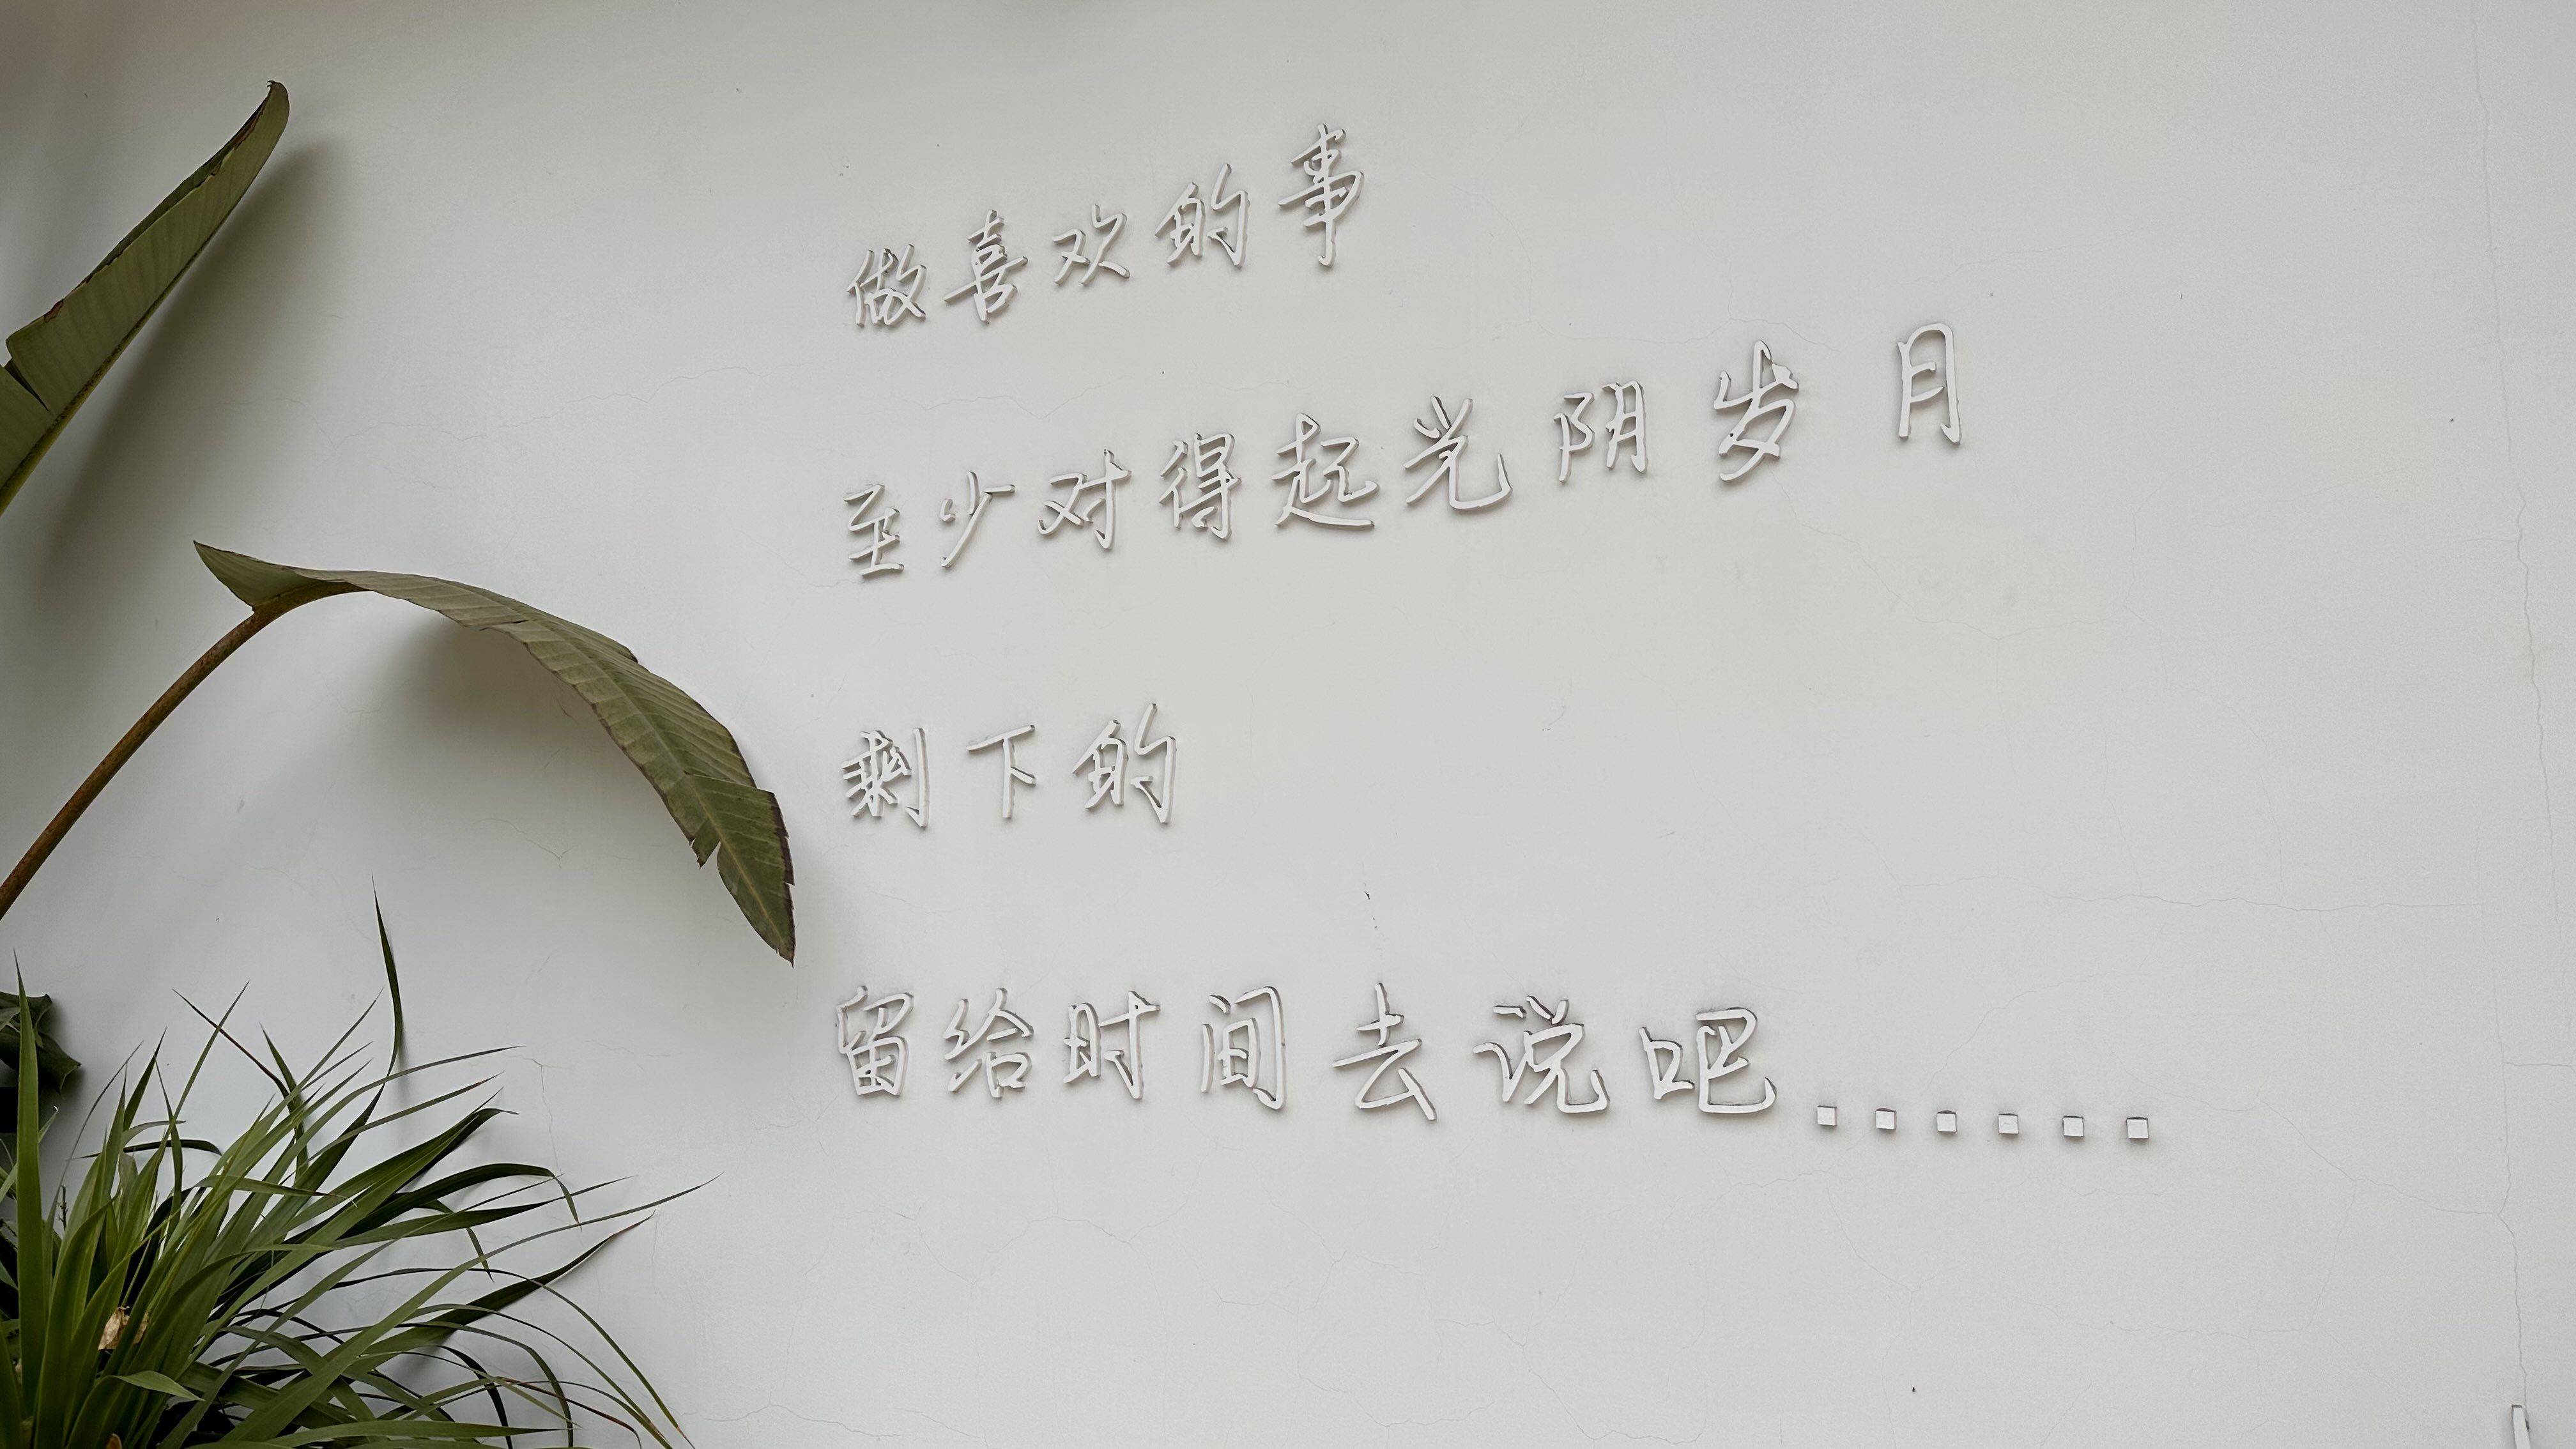 做喜欢的事
至少对得起光阴岁月
剩下的
留给时间去说吧......